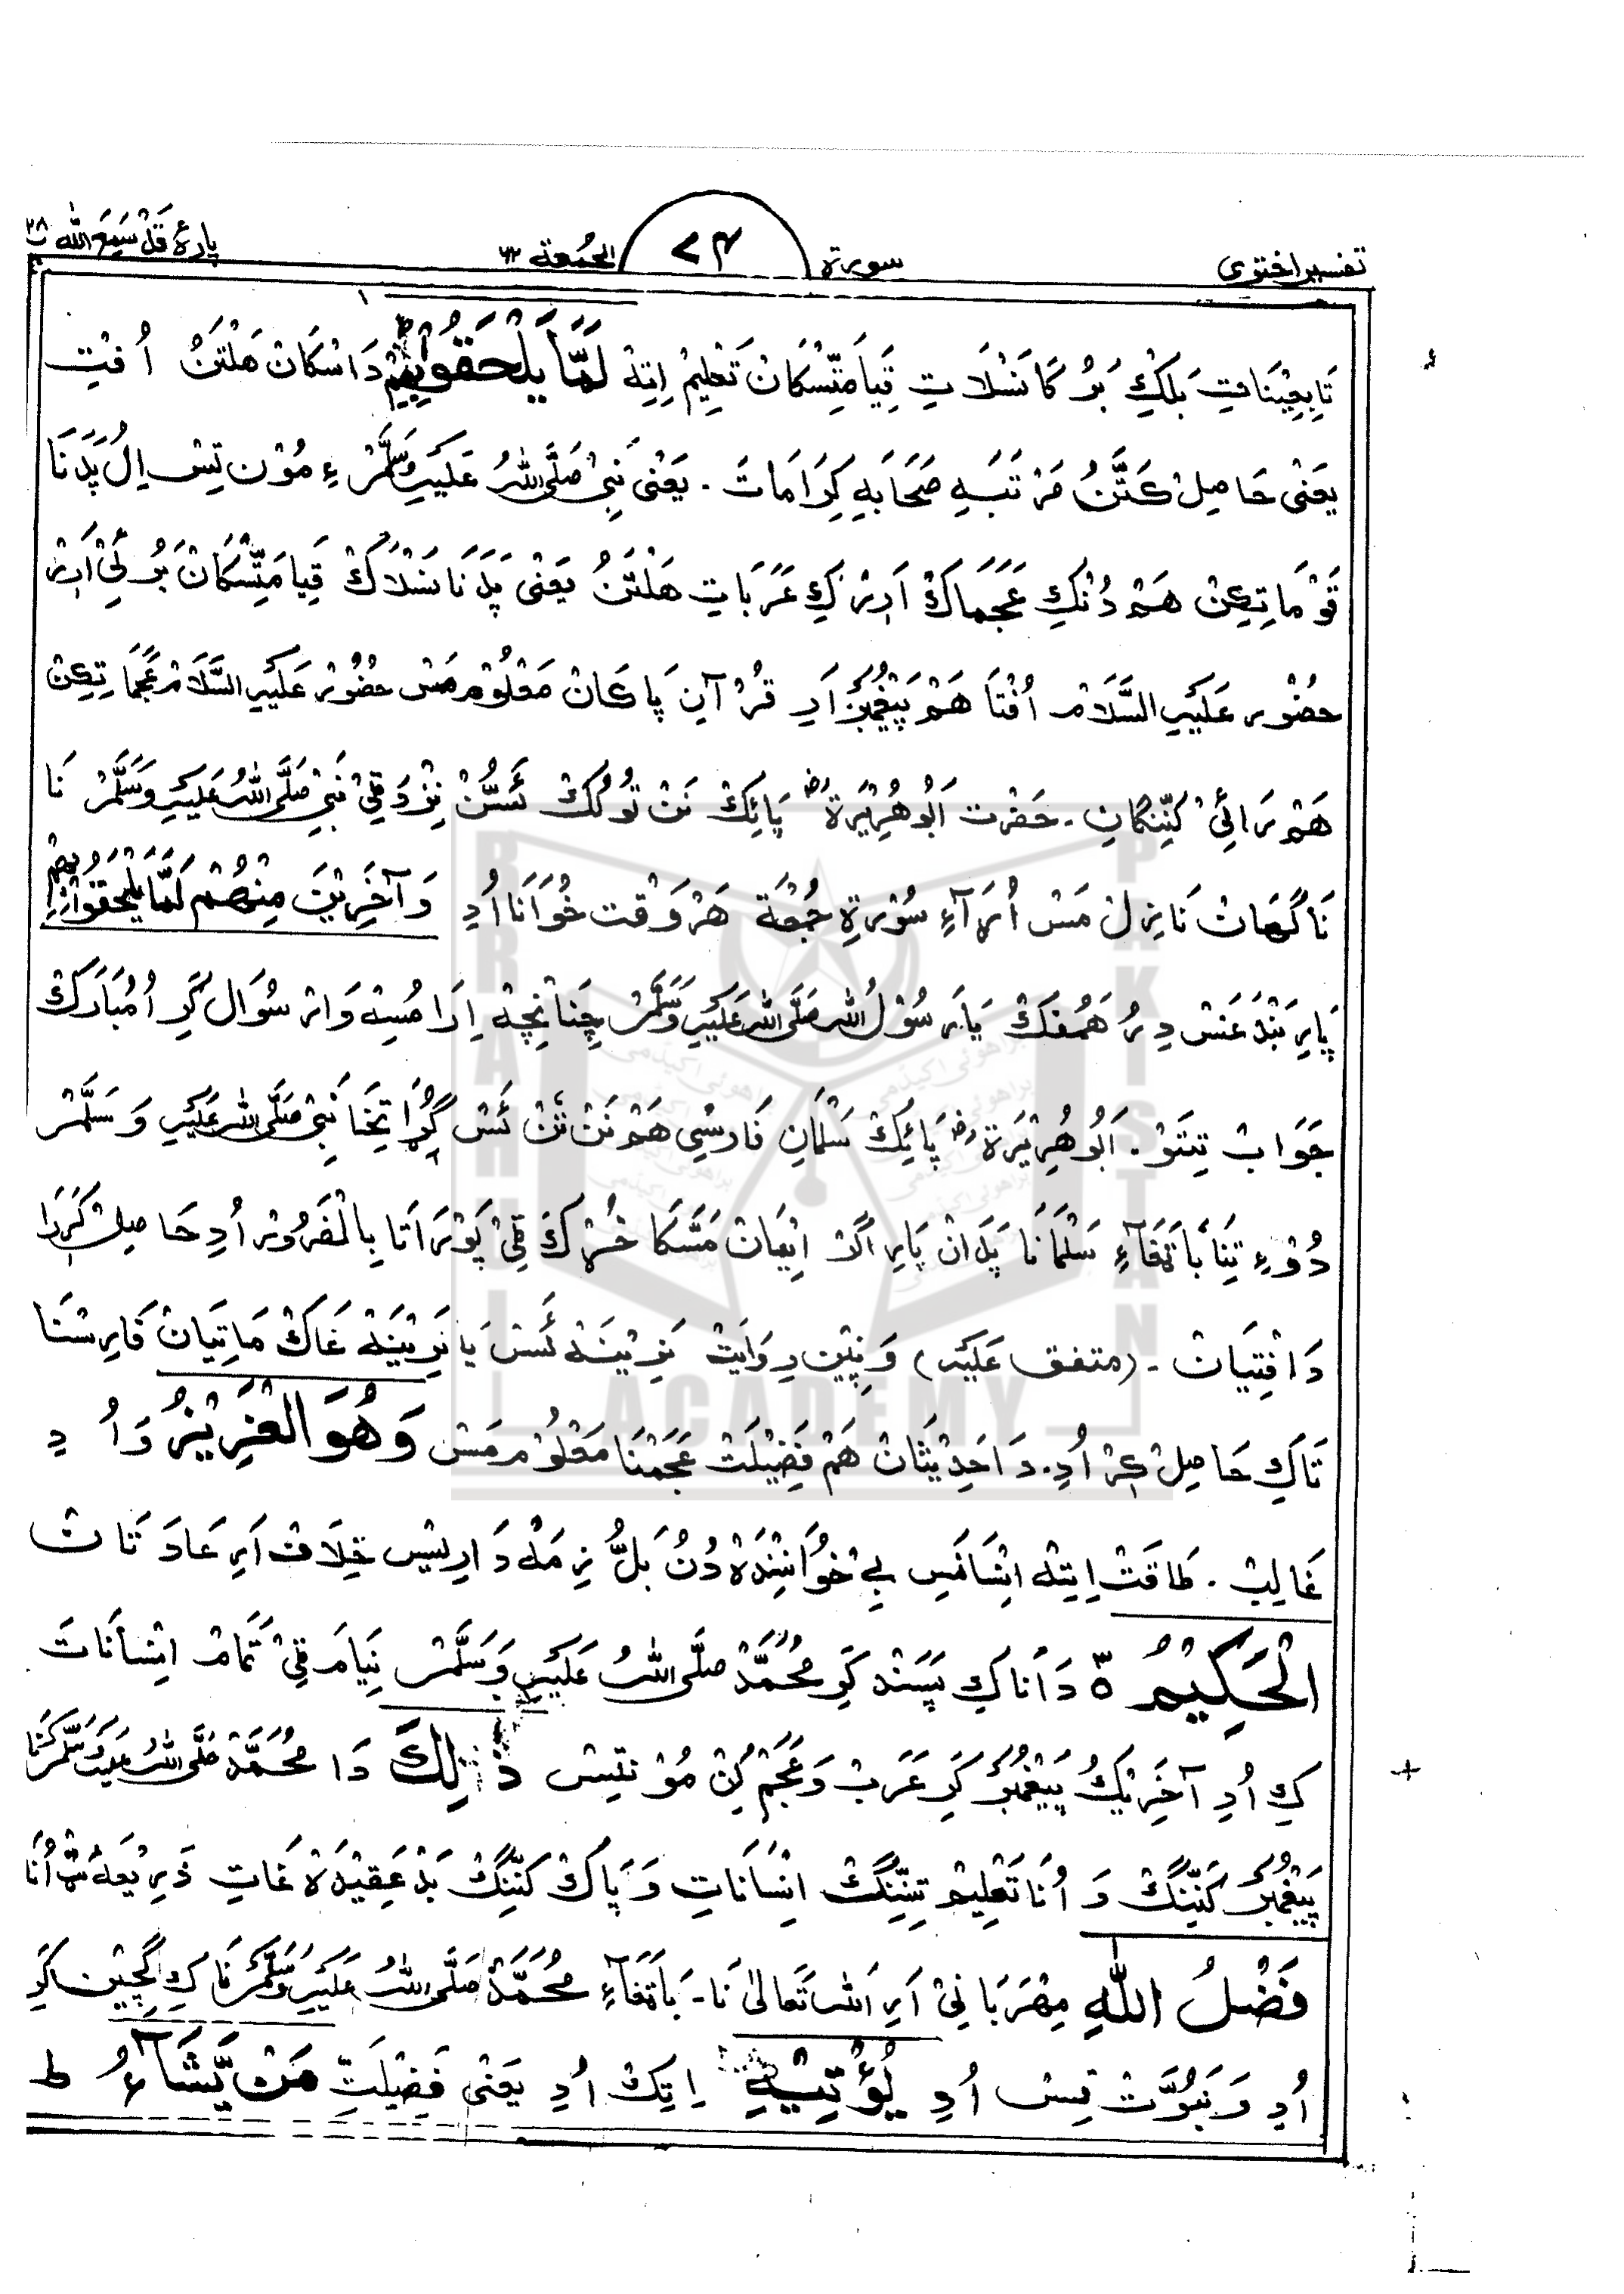 تفسیر اختری
سورة
٧٤
الجُمُعة ٦٢
پارۀ قَدْ سَمِعَ اللہ ٢٨
تَابِعِیْنَاتِ بَلْکِ بَرُ کَا نَسْلَاتِ قِیَامَتِسْکَانْ تَعْلِیْم اِتِہْ لَمَّا یَلْحَقُوْابِهِمْ دَاسْکَانْ هَلْتَنُ اُفْتِ
یَعْنِیْ حَاصِلْ کَتَّنُ مَرْتَبَہِ صَحَابَہِ کِرَامَاتَ ۔ یَعْنِیْ نَبِیْ صَلَّی اللہُ عَلَیْہِ وَسَلَّمْ ءِ مُوْن تِسْ اِلْ پَدَنَا
قَوْمَاتِکِنْ هَمْ دُنْکِ عَجَمَاکْ اَرِیْرْ کِ عَرَبَاتِ هَلْتَنُ یَعْنِیْ پَدَنَا نَسْلَاکْ قِیَامَتِّسْکَانْ بَرُ
حضُوْر عَلَیْہِ السَّلَامْ اُفْتَا هَمْ پَیْغَمْبَرْ اَرِ قُرْآنِ پَاکَانْ مَعْلُوْم مَسْ حضُوْر عَلَیْہِ السَّلَامْ عَجَمَاتِکِنْ
هَمْ رَائِیْ کَنِّنگَانِ ۔ حَضْرَت اَبُوْهُرَیْرَةؓ پَائِکْ نَنْ تُولُکْ ئَسُّنْ نِزْدَقِیْ نَبِیْ صَلَّی اللہُ عَلَیْہِ وَسَلَّمْ نَا
نَاگَهَانْ نَازِلْ مَسْ اُرَآءِ سُوْرَةِ جُمْعَة هَرْوَقْت خُوَانَا اُدِ وَآخَرِیْنَ مِنْهُمْ لَمَّا یَلْحَقُوْا بِهِمْ
پَارِ بَنْدَغَسْ دِرُ هَمُفْکْ یَارَسُوْلَ اللہ صَلَّی اللہُ عَلَیْہِ وَسَلَّمْ چنَانْچِہْ اِرَا مُسِہْ وَارْ سُوَال کَرِ اُمُبَارَکْ
جَوَابْ تِتَوْ ۔ اَبُوْهُرَیْرَةؓ پَائِکْ سَلْمَانِ فَارسِیْ هَمْ نَنْ ئَسْ نَبِیْ صَلَّی اللہُ عَلَیْہِ وَسَلَّمْ
دُوْءِ تِنَا بَاتْغَآءِ سَلْمَانَا پَدَانْ پَارِ اَگَرْ اِیْمَانْ مَسَّکَا خُرْکْ قِیْ پَوْرَاتَا بِالْضَرُوْر اُدِ حَاصِلْ کَرَرَا
دَافْتِیَانْ ۔ (متفق عَلَیْہ) وَپِیْن رِوَایَتْ نَرِیْنَہْ ئَسْ یَا نَرِیْنَہْ غَاکْ مَاتِیَانْ فَارِسْنَا
تَاکِ حَاصِلْ کَرْ اُدِ ۔ دَاحَدِیْثَانْ هَمْ فَضِیْلَتْ عَجَمْنَا مَعْلُوْم مَسْ وَهُوَ الْعَزِیْزُ وَاُدِ
غَالِبْ ۔ طَاقَتْ اِتِہْ اِنْسَانَسِ بِےْ خُوَانِنْدَہْ دُنُ بَلُّ ذِمَہْ دَارِیْسِ خِلَافْ اَرِ عَادَتَانْ
الْحَكِيْمُ ٥ دَانَاکِ پَسَنْد کَرِ مُحَمَّدْ صَلَّی اللہُ عَلَیْہِ وَسَلَّمْ نِیَامْ قِیْ تَمَامْ اِنْسَانَاتَ
کِ اُدِ آخَرِیْکُ پَیْغَمْبَرْ کَرِ عَرَبْ وَعَجَمْ کِنْ مُوْن تِسْ ذٰلِكَ دَا مُحَمَّدْ صَلَّی اللہُ عَلَیْہِ وَسَلَّمْ نَا
پَیْغَمْبَرْ کَنِّنگْ وَ اُنَا تَعْلِیْم تِنِّنگْ اِنْسَانَاتِ وَپَاکْ کَنِّنگْ بَدْ عَقِیْدَہْ غَاتِ ذَرِیْعَہْ اُنَا
فَضْلُ اللّٰهِ مِهْرَبَانِیْ اَرِ اَللہ تَعَالیٰ نَا ۔ بَاتْغَآءِ مُحَمَّدْ صَلَّی اللہُ عَلَیْہِ وَسَلَّمْ نَا کِ گچِیْن کَرِ
اُدِ وَنَبُوَّتْ تِسْ اُدِ یُؤْتِیْهِ اِتِکْ اُدِ یَعْنِیْ فَضِیْلَتِ مَنْ یَّشَآءُ ط
BRAHUI
ACADEMY
PAKISTAN
براہوئی اکیڈمی